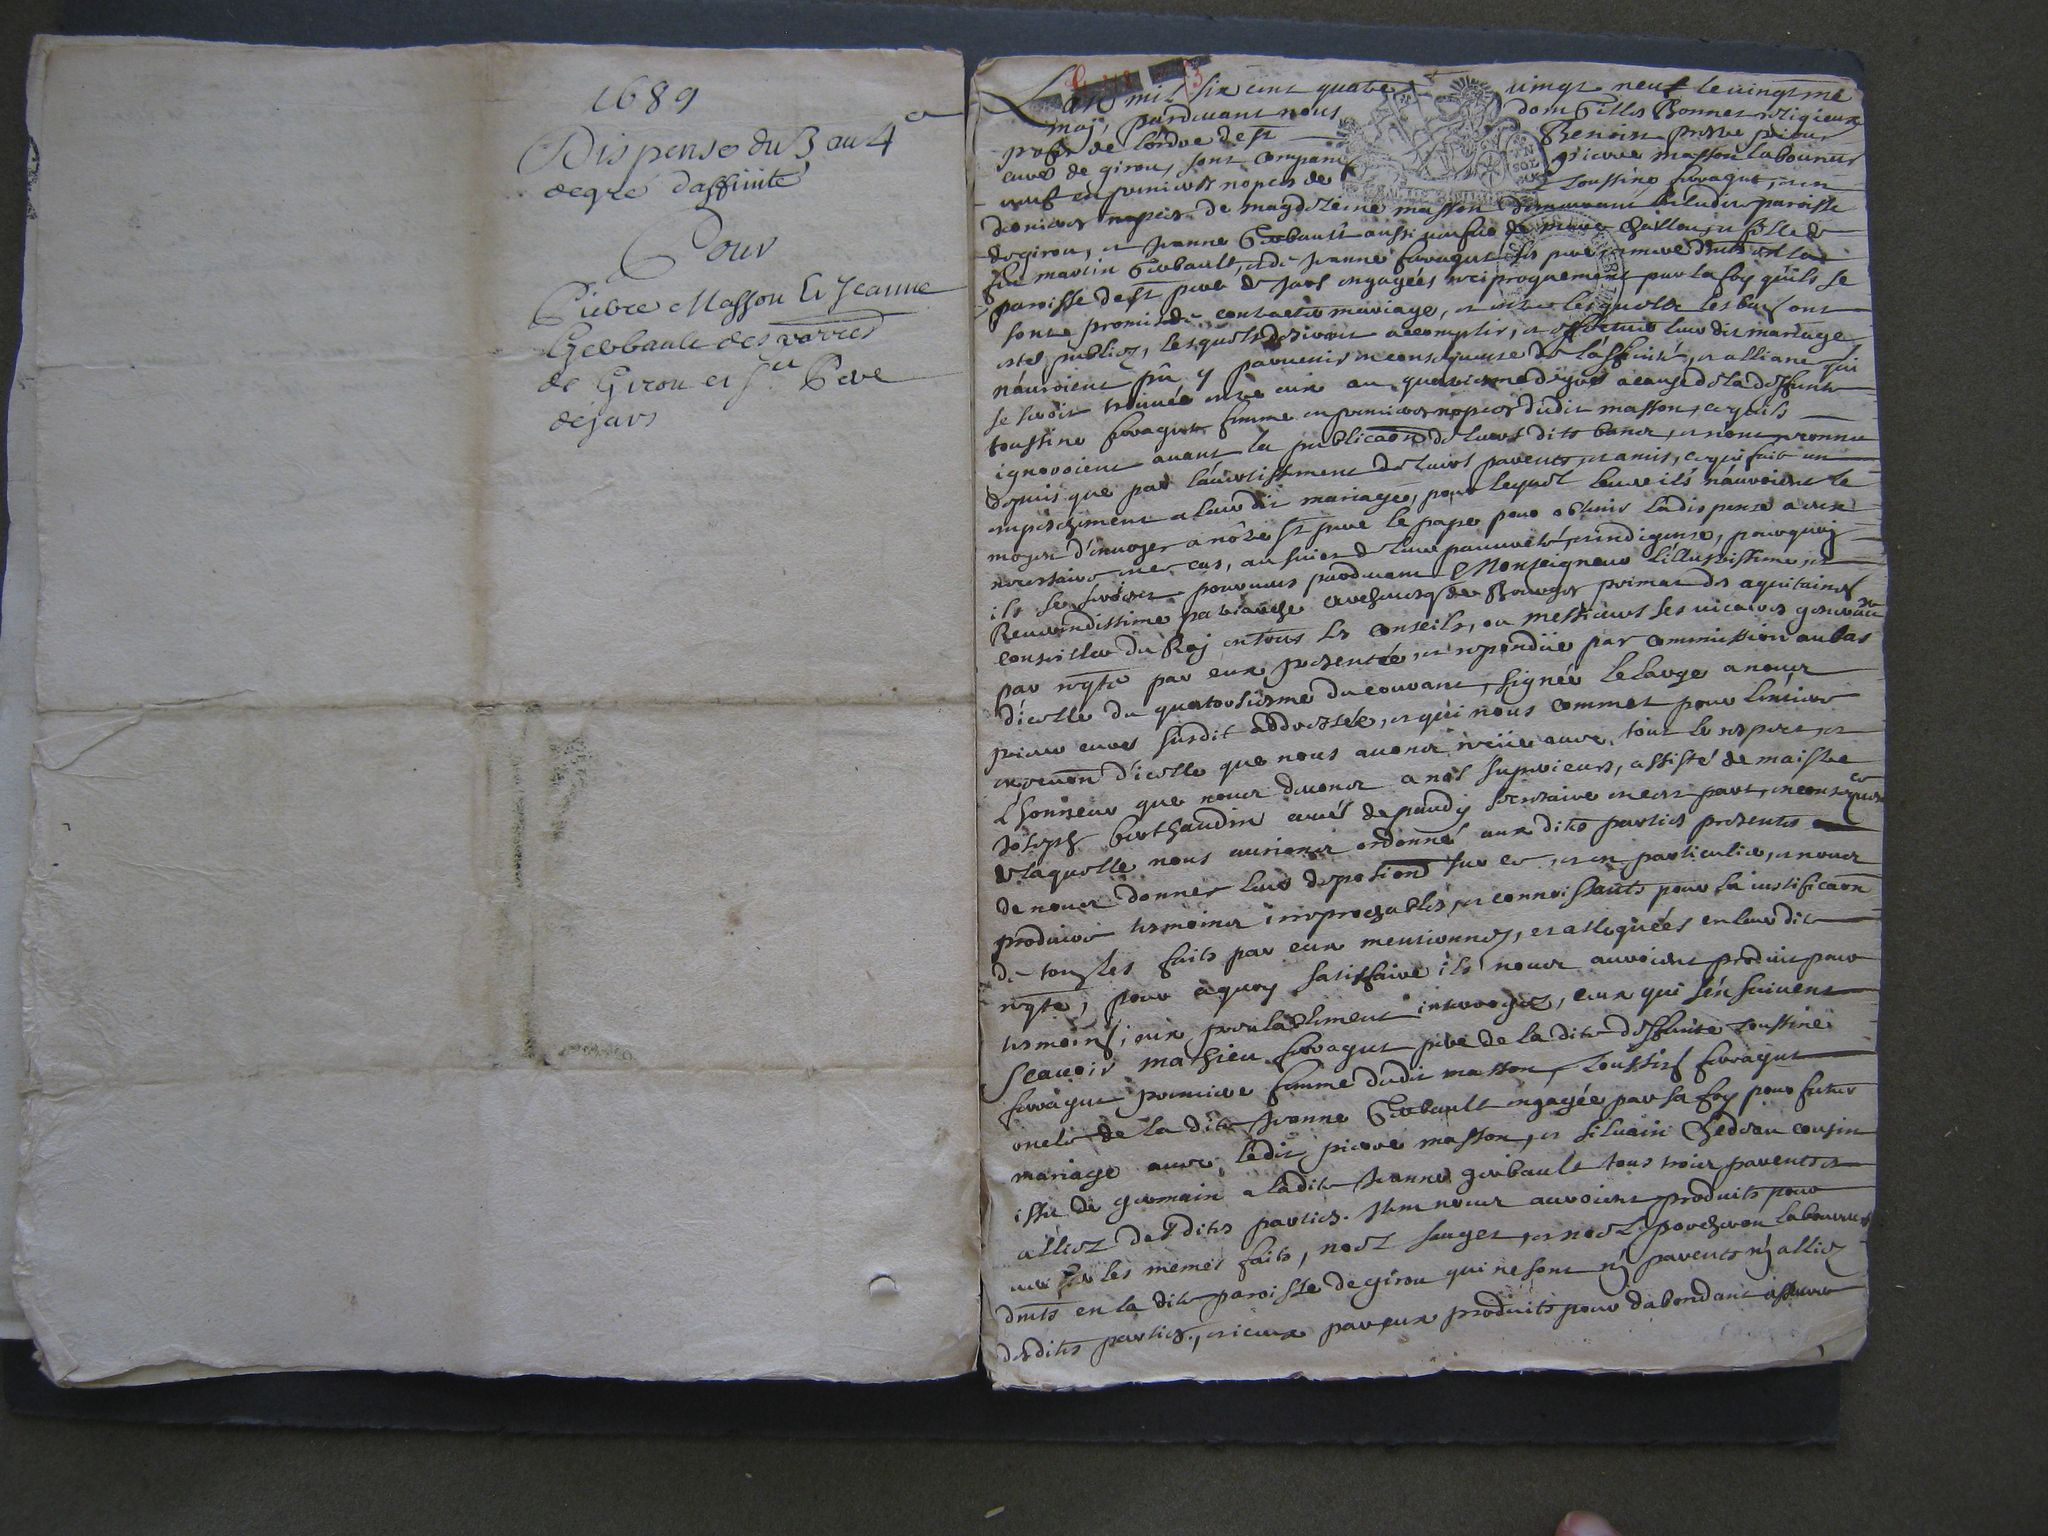 1689
Dispense du 3 au 4e
degré d'affinité
Pour
Pierre Masson Et Jeanne
Gerbault des parres
de Giron et St Pere
dejars
L'an mil six cent quatre vingt neuf le vingtme
may, pardevant nous dom Gilles Bonnet religieux
profes de l'ordre de st Benoist prestre prieur
curé de giron, sont comparu pierre masson laboureur
veuf en premieres nopces de toussine favagut, et en
dernieres nopces de magdeleine masson demeurant paroisse
de giron, et Jeanne Gerbault aussi veufve de chillou, et fille de
feu martin Gerbault, et de Jeanne favagut ses pere et mere dmts en la
paroisse de st pere de Jars engagées reciproquement par la foy qu'ils se
sont promis de contracter mariage, et entre lesquels les bans ont
esté publiez, lesquels desirant accomplir, et effectuer leur dit mariage
n'auroient pû y parvenir en consequence de l'affinité, et alliance qui
se seroit trouvée entre eux au quatriesme degré a cause de la deffunte
toussine favagut femme en premieres nopces dudit masson, ce qu'ils
ignoroient avant la publicaôn de leurs dits bancs, et n'ont reconnu
depuis que par l'avertissement de leurs parents, et amis, ce qui fait un
empeschement a leur dit mariage, pour lequel lever ils n'auroient le
moyen d'envoyer a nôtre st pere le pape pour obtenir la dispense a eux
necessaire en ce cas, au sujet de leur pauvreté, et indigence, pourquoy
ils se seroient pourveus pardevant Monseigneur l'illustrissime, et
Reverendissime patriarche archevesq de Bourges primat des aquitaines
conseiller du Roy en tous ses conseils, ou messieurs ses vicaires generaux
par reqte par eux presentée, et repondüe par commission au bas
d'icelle du quatorsiesme du courant, signée lelarge a nous
prieur curé susdit addressée, et qui nous commet pour l'entiere
execuôn d'icelle que nous avons reçüe avec tout le respect, et
l'honneur que nous devons a nos superieurs, assisté de maistre
Joseph berthaudin curé de paudy secretaire en ces part, en consequence
de laquelle nous aurions ordonné aux dites parties presentes
de nous donner leur deposiôn sur ce, et en particulier, et nous
produire tesmoins irreprochables, et connoissants pour la justificaôn
de tous les faits par eux mentionnez, et alleguées en leur dite
reqte, pour a quoy satisfaire ils nous auroient produit pour
tesmoins, eux prealablement interrogez, ceux qui s'en suivent
sçavoir mathieu favagut pere de la dite deffunte toussine
favagut premiere femme dudit masson, toussin favagut
oncle de la dite Jeanne Gerbault engagée par sa foy pour futur
mariage avec ledit pierre masson, et silvain chedeau cousin
issu de germain a ladite Jeanne gerbault tous trois parents et
alliez desdites parties. Item nous auroient produits pour
les memes faits, noel sauget, et noel porcheron laboureurs
dmts en la dite paroisse de giron qui ne sont ny parents ny alliez
desdites parties, et iceux par eux produits pour d'abondant